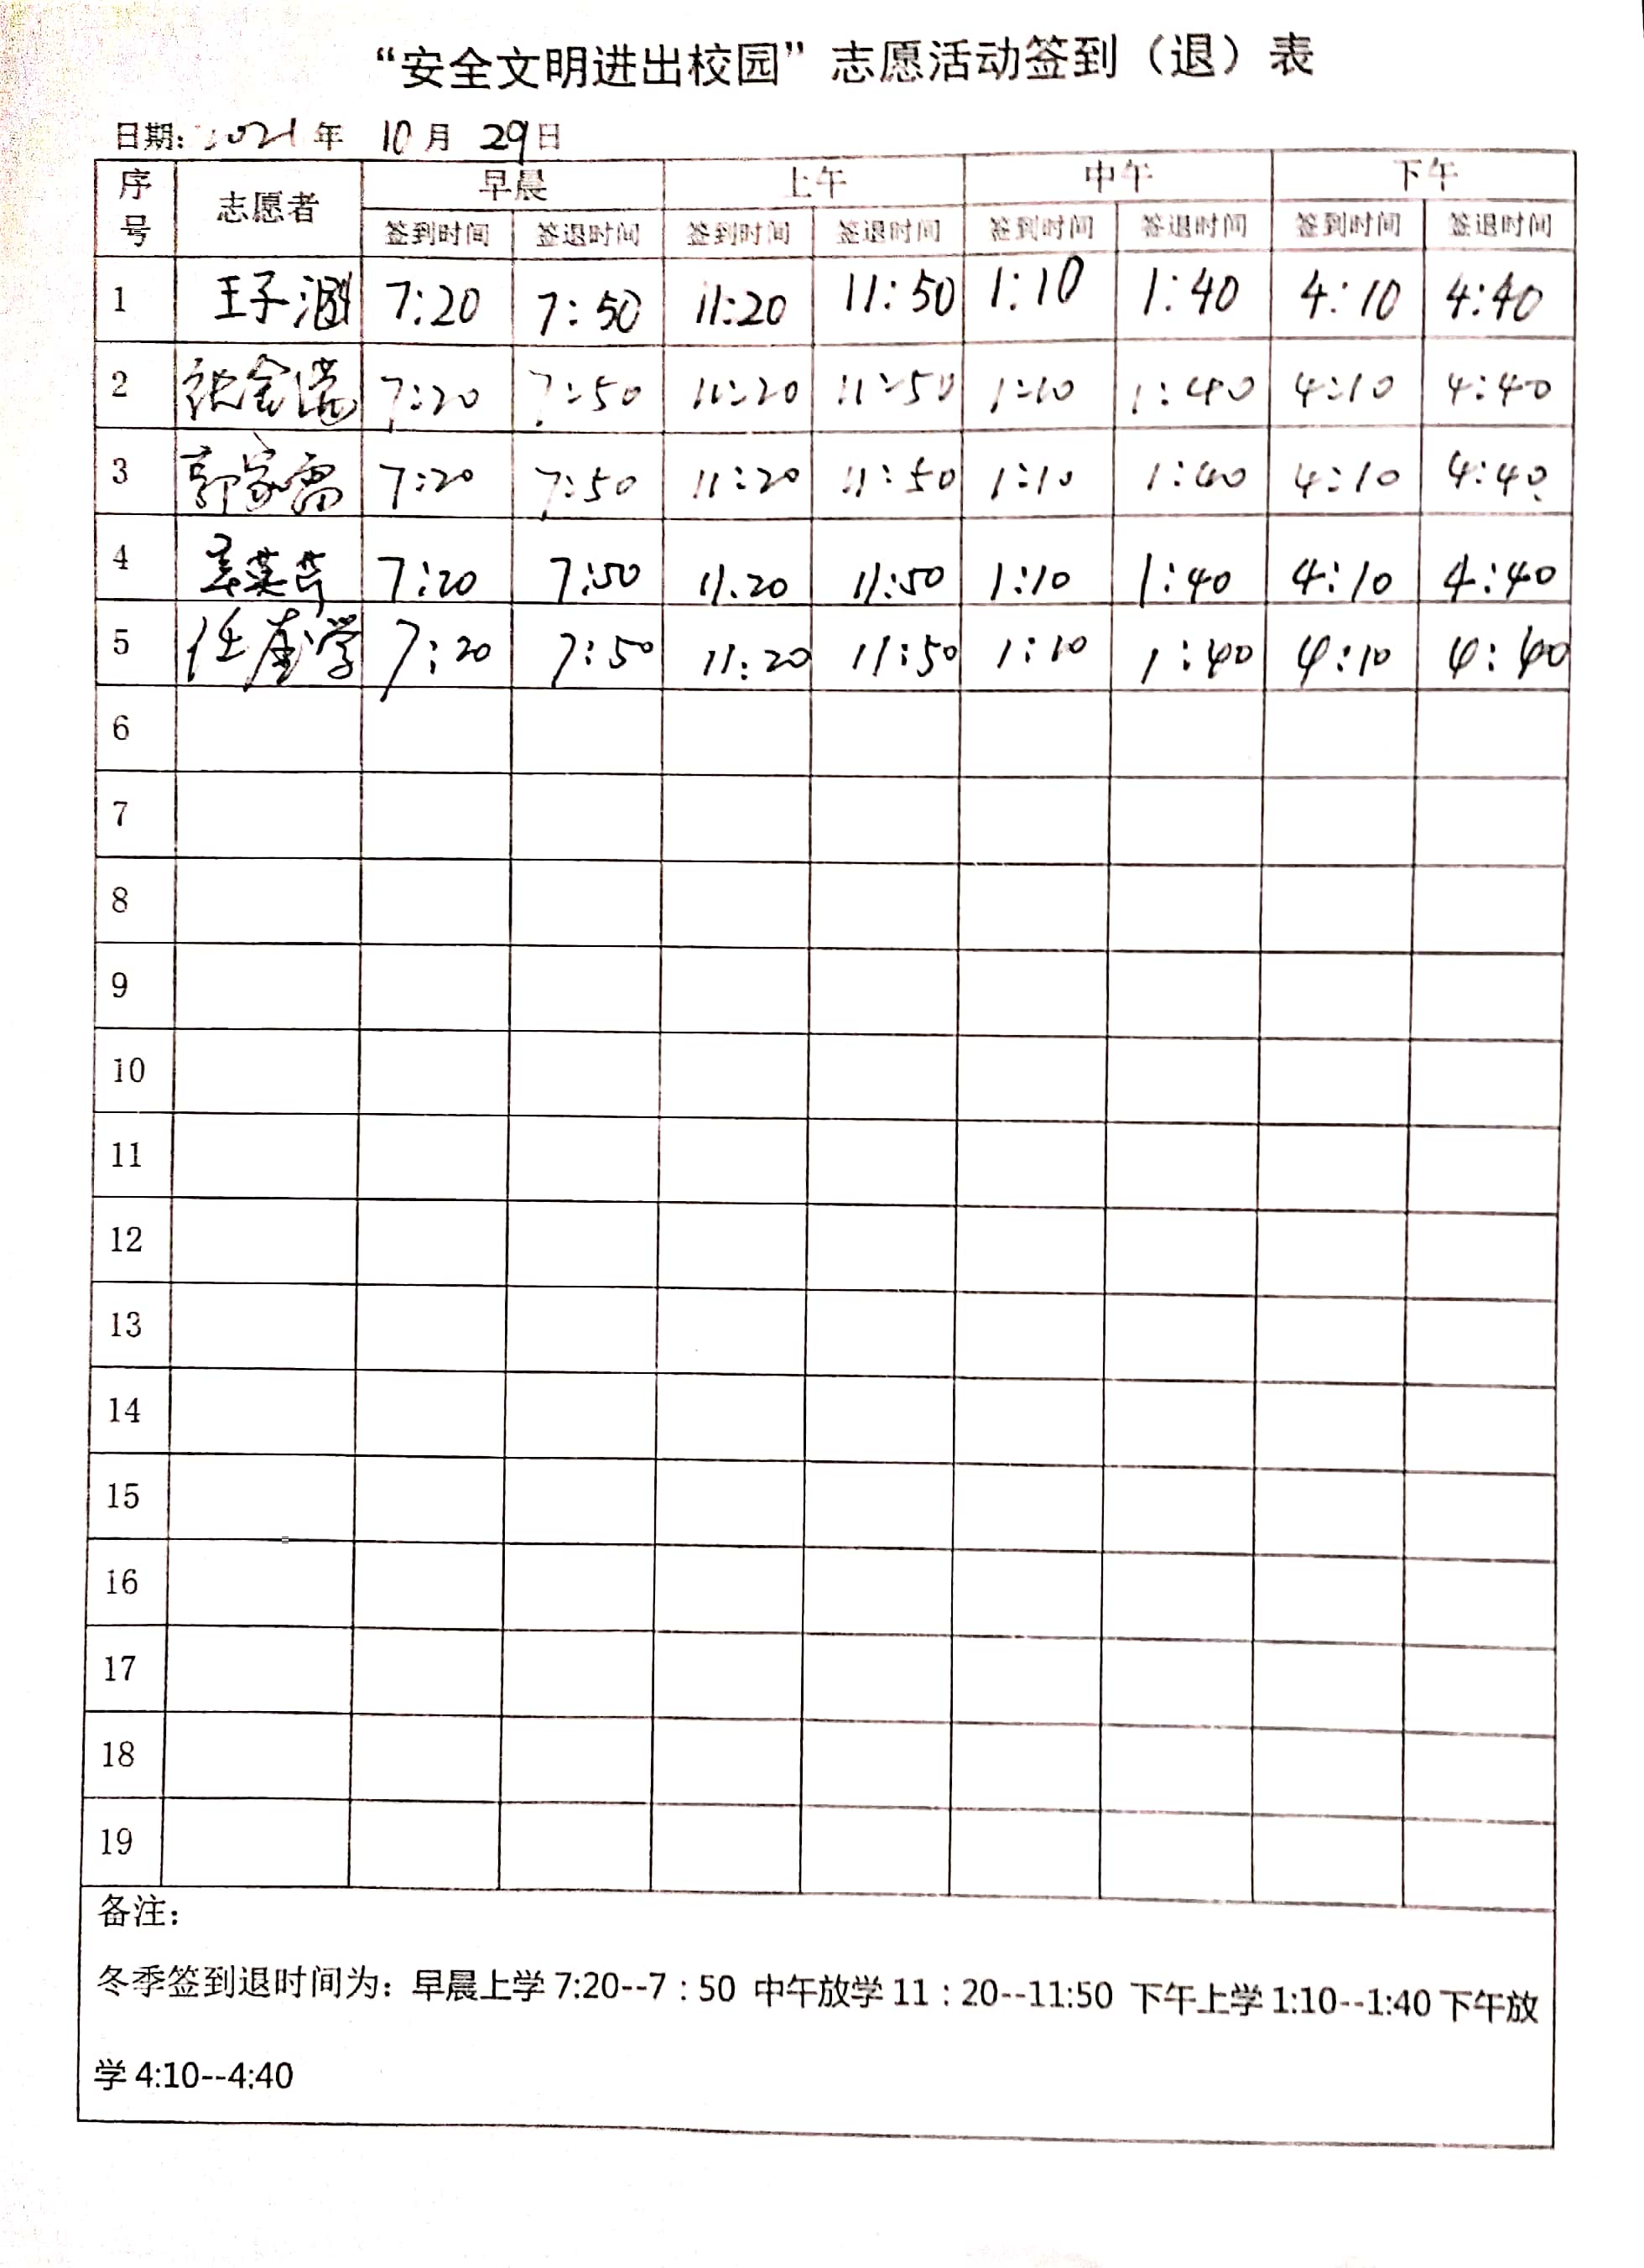 “安全文明进出校园”志愿活动签到（退）表
日期：2021年 10月 29日
序号 志愿者 早晨 上午 中午 下午
签到时间 签退时间 签到时间 签退时间 签到时间 签退时间 签到时间 签退时间
1 王子涵 7:20 7:50 11:20 11:50 1:10 1:40 4:10 4:40
2 7:20 7:50 11:20 11:50 1:10 1:40 4:10 4:40
3 郭家雷 7:20 7:50 11:20 11:50 1:10 1:40 4:10 4:40
4 7:20 7:50 11:20 11:50 1:10 1:40 4:10 4:40
5 7:20 7:50 11:20 11:50 1:10 1:40 4:10 4:40
6
7
8
9
10
11
12
13
14
15
16
17
18
19
备注：
冬季签到退时间为：早晨上学7:20--7：50 中午放学11：20--11:50 下午上学1:10--1:40下午放
学4:10--4:40